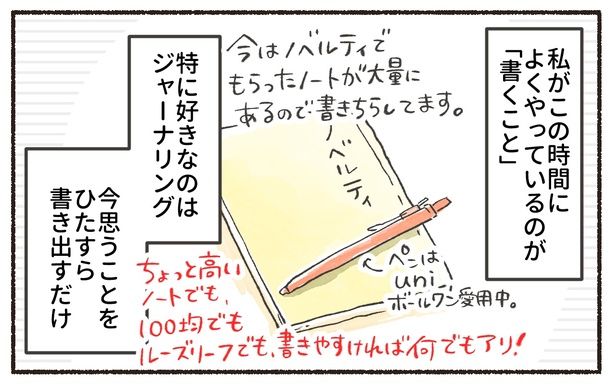 私がこの時間に
よくやっているのが
「書くこと」
今はノベルティで
もらったノートが大量に
あるので書きちらしてます。
特に好きなのは
ジャーナリング
ノベルティ
今思うことを
ひたすら
書き出すだけ
ペンは
uni
ボールワン愛用中。
ちょっと高い
ノートでも、
100均でも
ルーズリーフでも、書きやすければ何でもアリ!